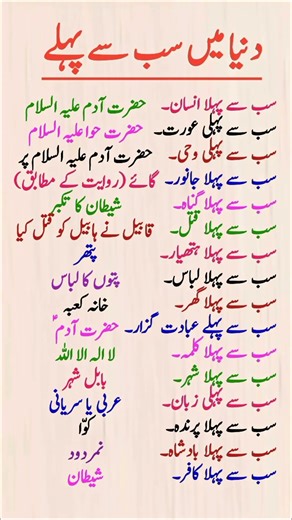 دنیا میں سب سے پہلے
سب سے پہلا انسان۔ حضرت آدم علیہ السلام
سب سے پہلی عورت۔ حضرت حوا علیہ السلام
سب سے پہلی وحی۔ حضرت آدم علیہ السلام پر
سب سے پہلا جانور۔ گائے (روایت کے مطابق)
سب سے پہلا گناہ۔ شیطان کا تکبر
سب سے پہلا قتل۔ قابیل نے ہابیل کو قتل کیا
سب سے پہلا ہتھیار۔ پتھر
سب سے پہلا لباس۔ پتوں کا لباس
سب سے پہلا گھر۔ خانہ کعبہ
سب سے پہلے عبادت گزار۔ حضرت آدمؑ
سب سے پہلا کلمہ۔ لا الہ الا اللہ
سب سے پہلا شہر۔ بابل شہر
سب سے پہلی زبان۔ عربی یا سریانی
سب سے پہلا پرندہ۔ کوّا
سب سے پہلا بادشاہ۔ نمردود
سب سے پہلا کافر۔ شیطان